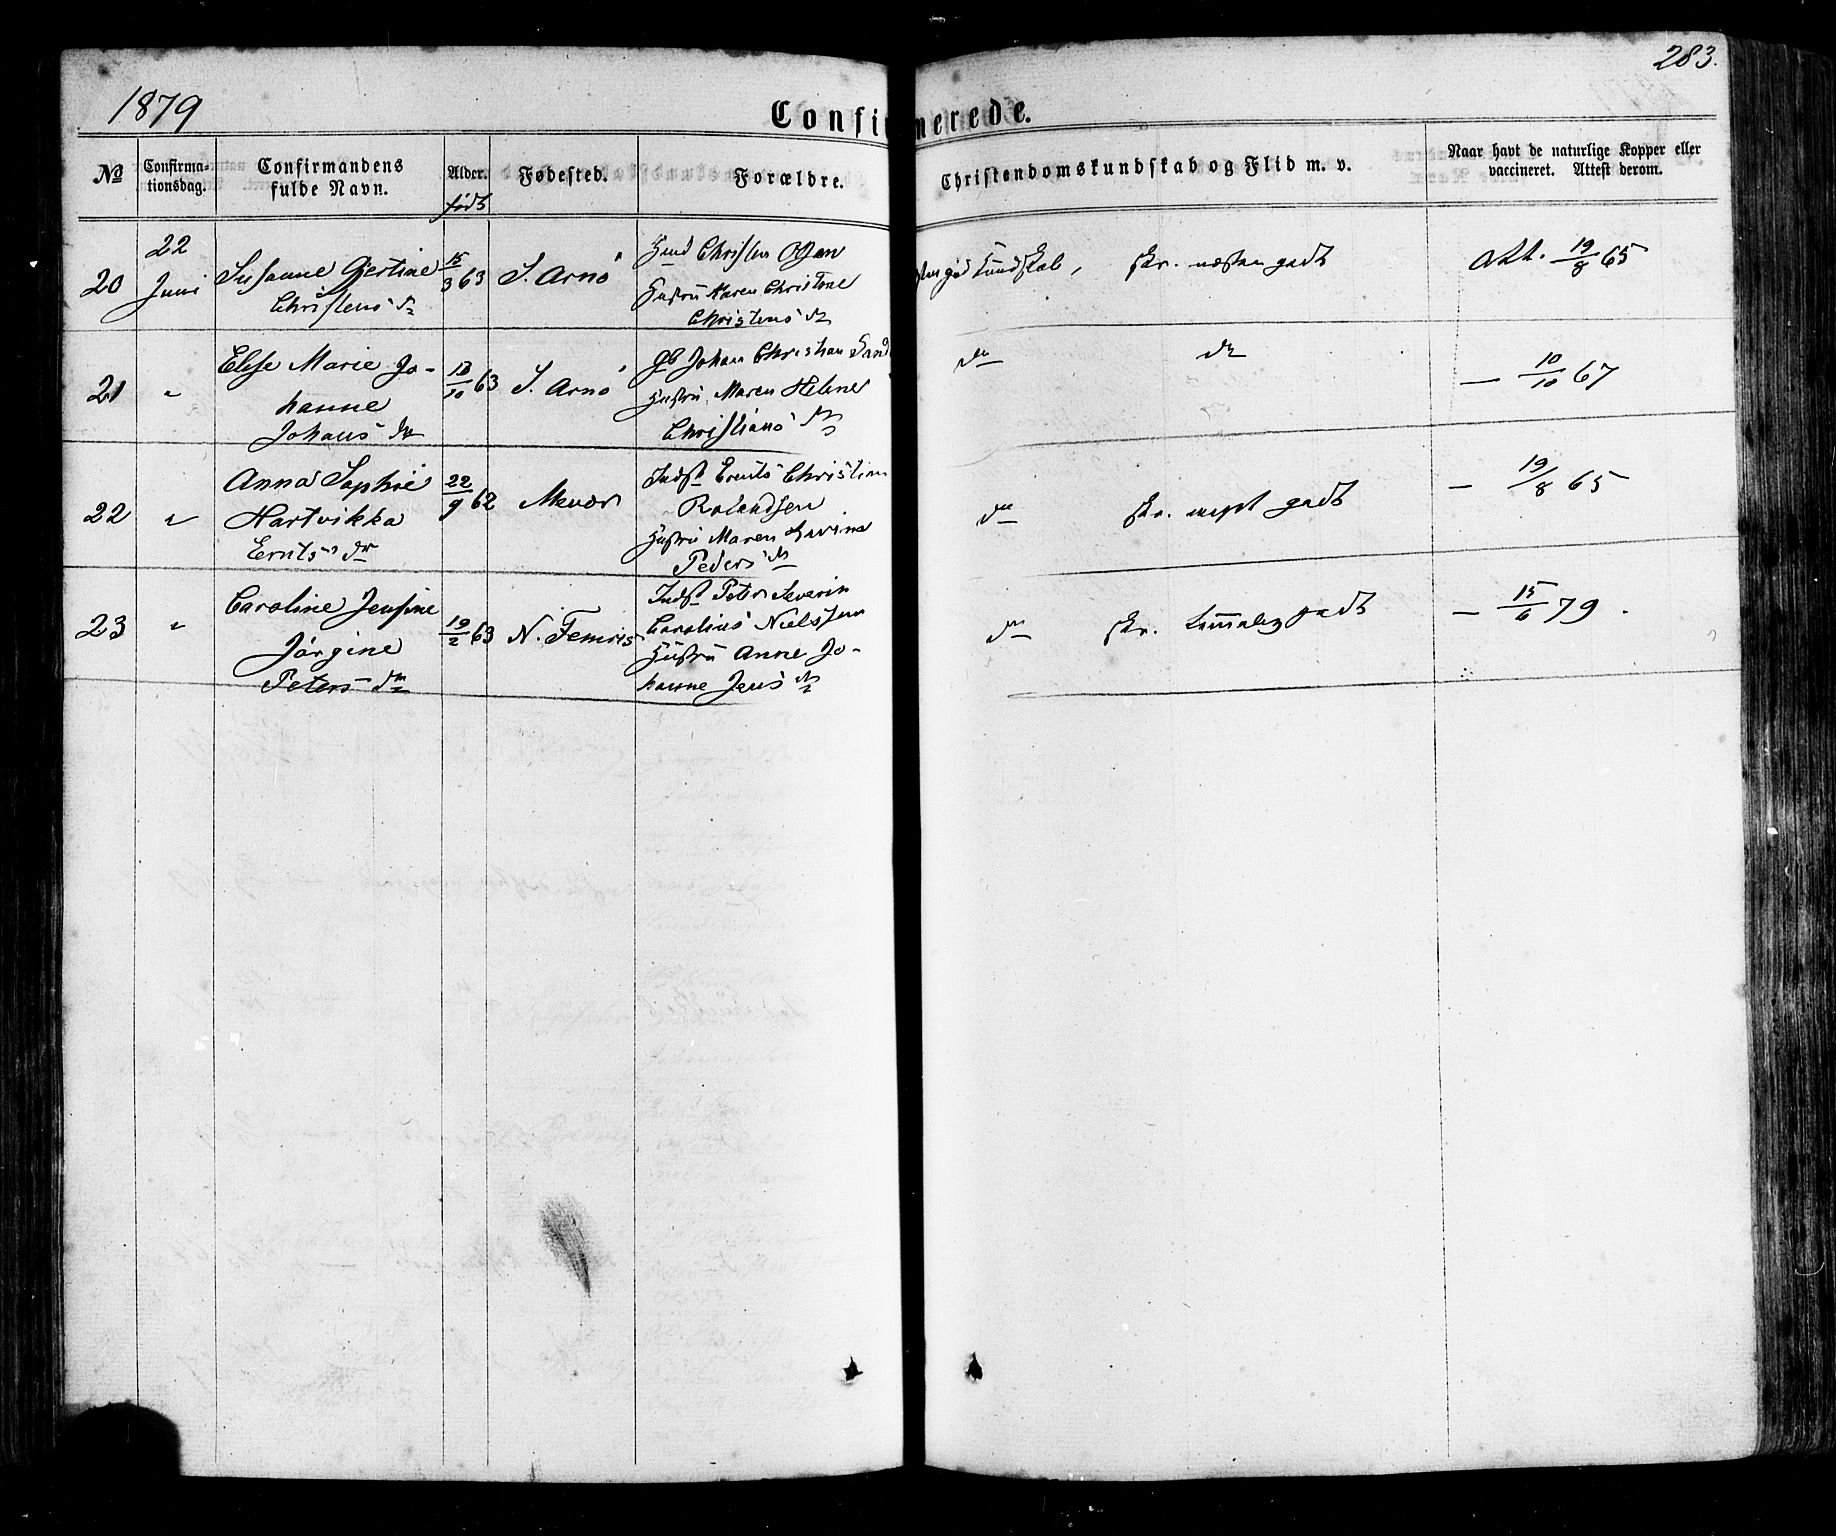 283.
1879
Confirmerede.
No
Confirma-
tionsdag.
Confirmandens
fulde Navn.
Alder.
født
Fødested.
Forældre.
Christendomskundskab og Flid m. v.
Naar havt de naturlige Kopper eller
vaccineret. Attest derom.
20
22
Juni
Susanne Gjertine
Christens dr
15/3 63
S. Arnö
Christen Olsen
Hustru Karen Christine
Christens dr
god Kundskab, skr. næsten godt
Att. 19/8 65
21
"
Elise Marie Jo-
hanne
Johans dr
13/10 63
S. Arnö
Gb Johan Christian Sand
Hustru Maren Helene
Christians dr
do
do
— 10/10 67
22
"
Anna Sophie
Hartvikka
Ernts dr
22/9 62
Mevær
Indst Ernts Christian
Rolandsen
Hustru Maren
Peders dr
do
skr. meget godt
— 19/8 65
23
"
Caroline Jensine
Jörgine
Peters dr
19/2 63
N. Femris
Indst Peter Severin
Carolius Nielssen
Hustru Anne Jo-
hanne Jens dr
do
skr. temmelig godt
— 15/6 79.